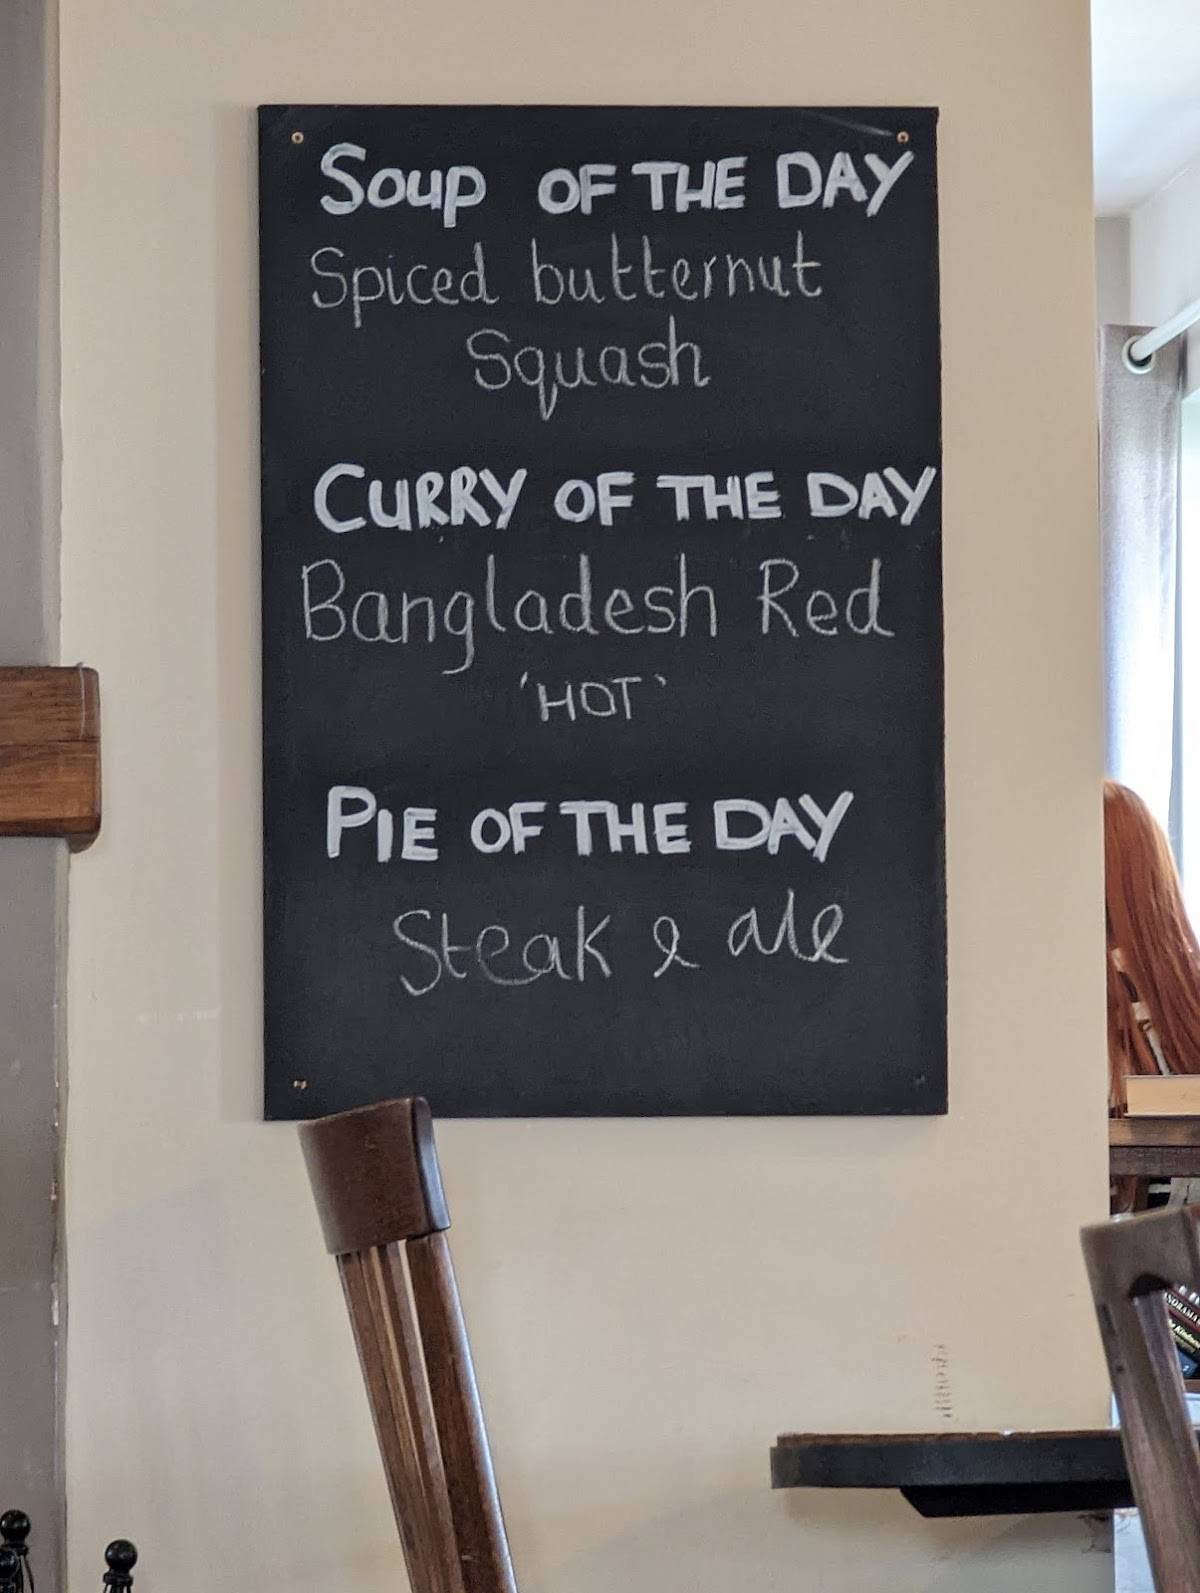 Soup OF THE DAY
Spiced butternut
Squash
CURRY OF THE DAY
Bangladesh Red
'HOT'
PIE OF THE DAY
Steak & ale